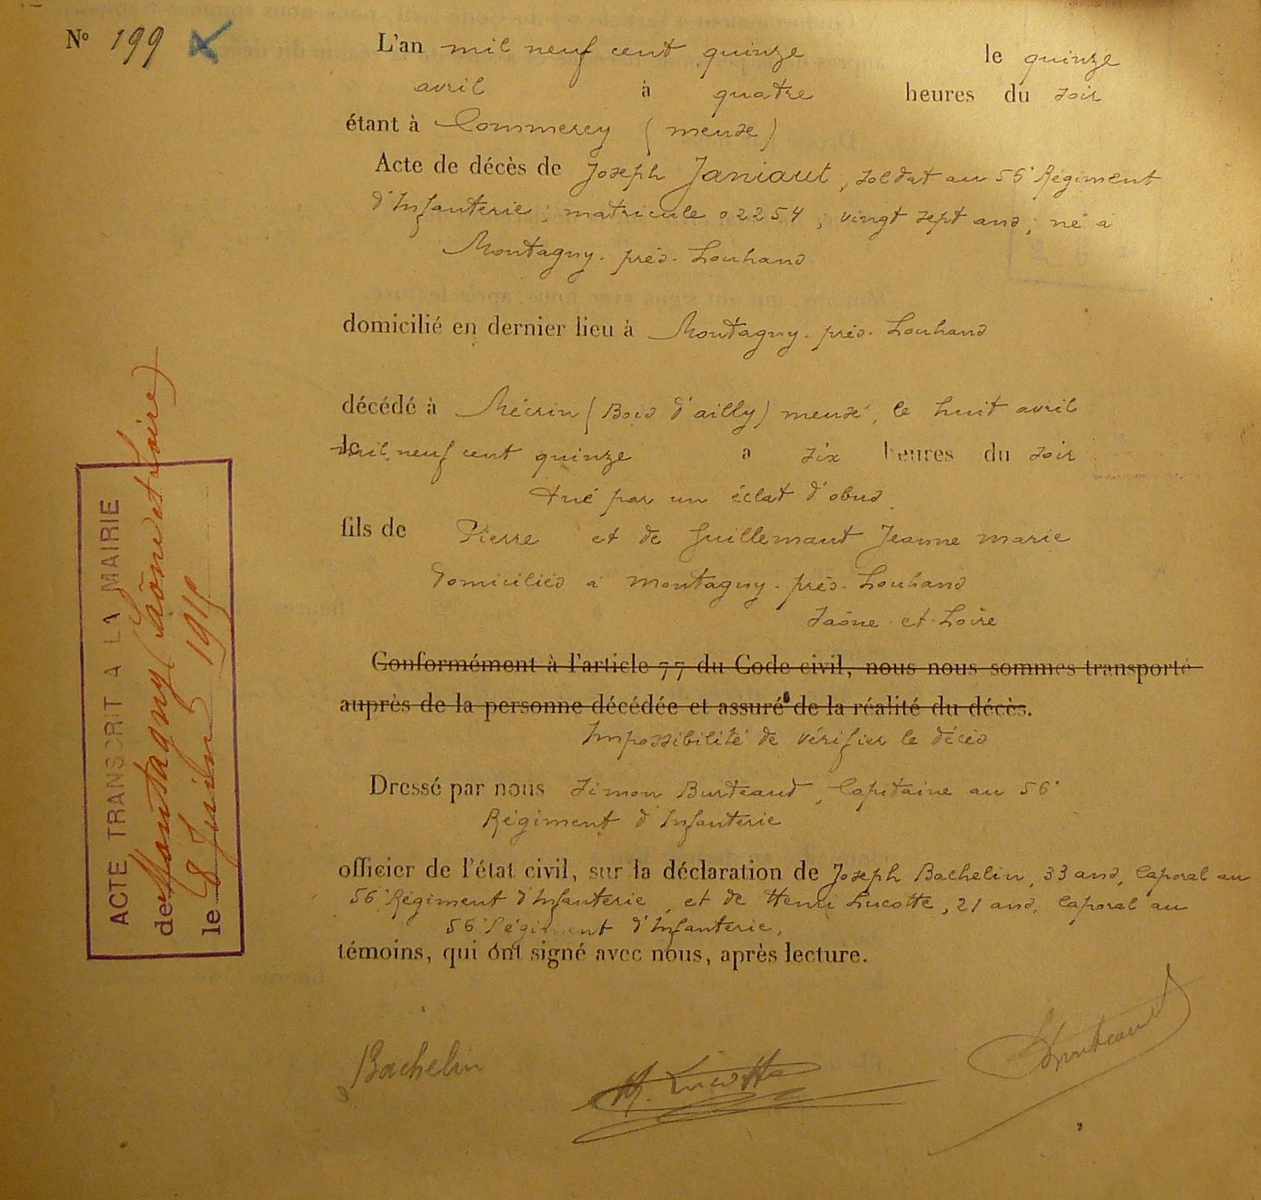 N° 199
L'an mil neuf cent quinze le quinze
avril à quatre heures du soir
étant à Commercy (meuse)
Acte de décès de Joseph Janiaut, soldat au 56e Régiment
d'Infanterie; matricule 02254; vingt sept ans; né à
Montagny-près-Louhans
domicilié en dernier lieu à Montagny-près-Louhans
décédé à Mécrin (Bois d'ailly) meuse, le huit avril
mil neuf cent quinze a six heures du soir
tué par un éclat d'obus.
fils de Pierre et de Guillemaut Jeanne marie
domiciliés à montagny-près-Louhans
Saône-et-Loire
Conformément à l'article 77 du Code civil, nous nous sommes transporté
auprès de la personne décédée et assuré de la réalité du décès.
Impossibilité de vérifier le décès
Dressé par nous Simon Burteaud, Capitaine au 56e
Régiment d'Infanterie
officier de l'état civil, sur la déclaration de Joseph Bachelin, 33 ans, Caporal au
56e Régiment d'Infanterie, et de Henri Lucotte, 21 ans, Caporal au
56e Régiment d'Infanterie,
témoins, qui ont signé avec nous, après lecture.
Bachelin H. Lucotte
ACTE TRANSCRIT A LA MAIRIE
de Montagny (Saône et Loire)
le 8 Juin 1915